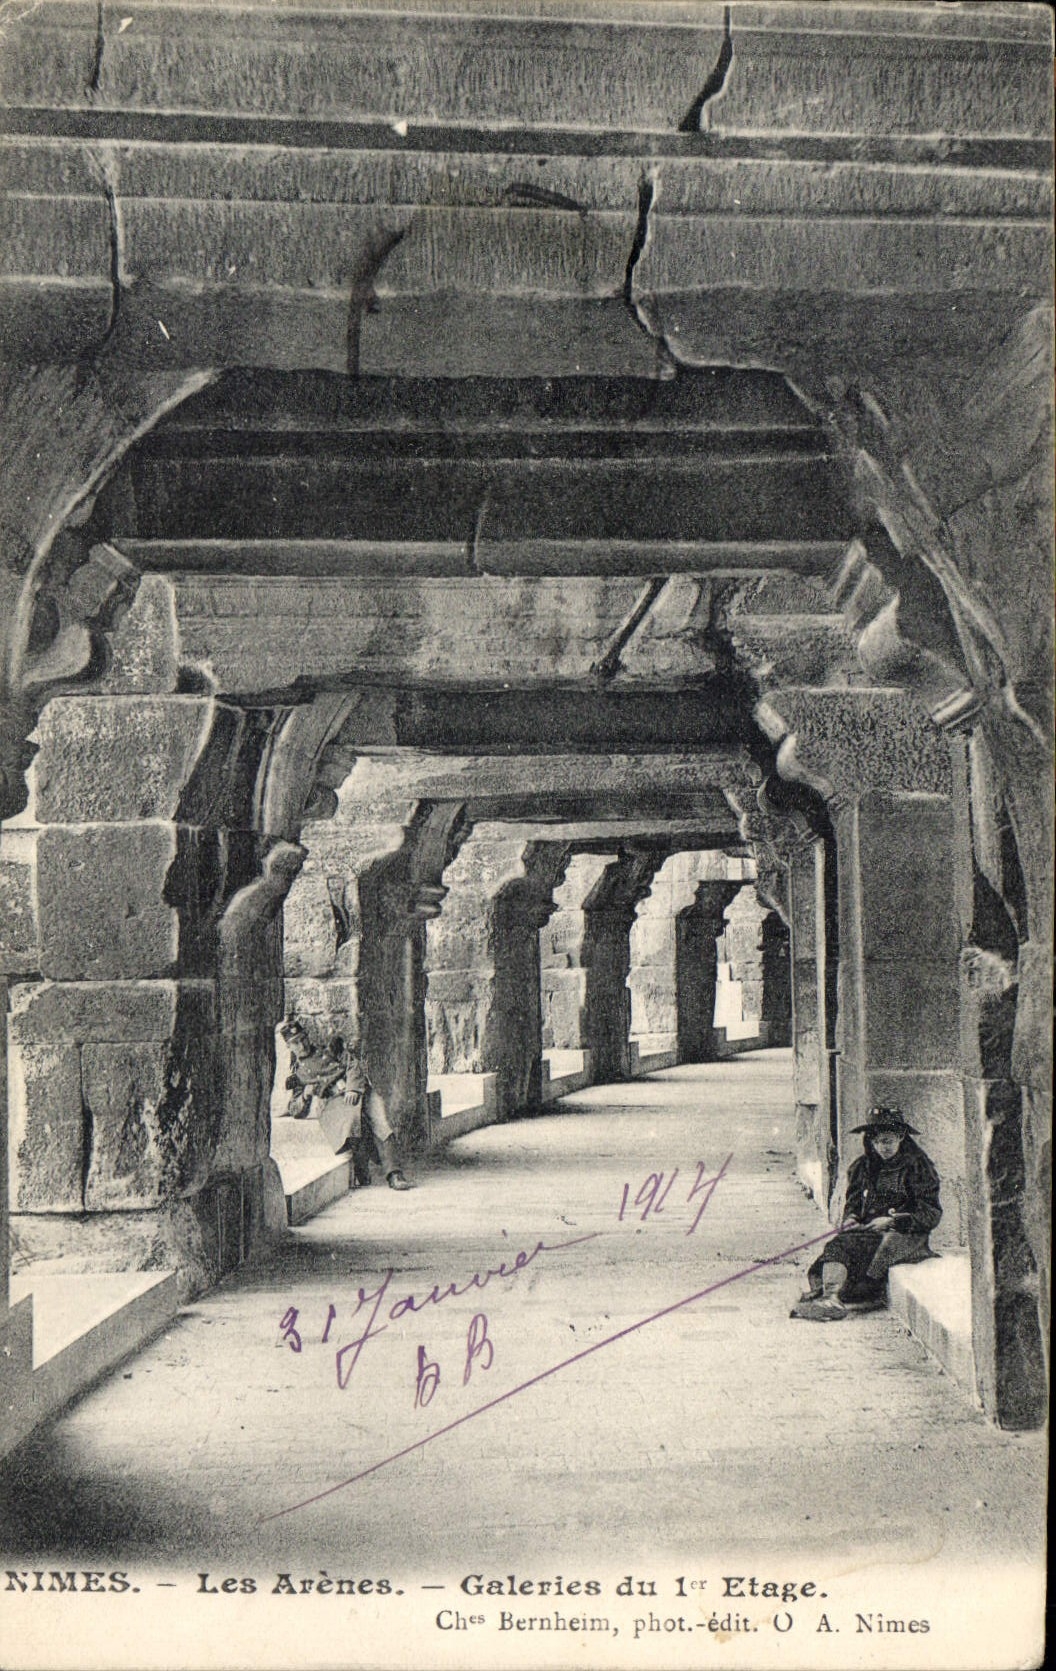 31 Janvier 1914
B B
NIMES. — Les Arènes. — Galeries du 1er Etage.
Ches Bernheim, phot.-édit. O A. Nîmes